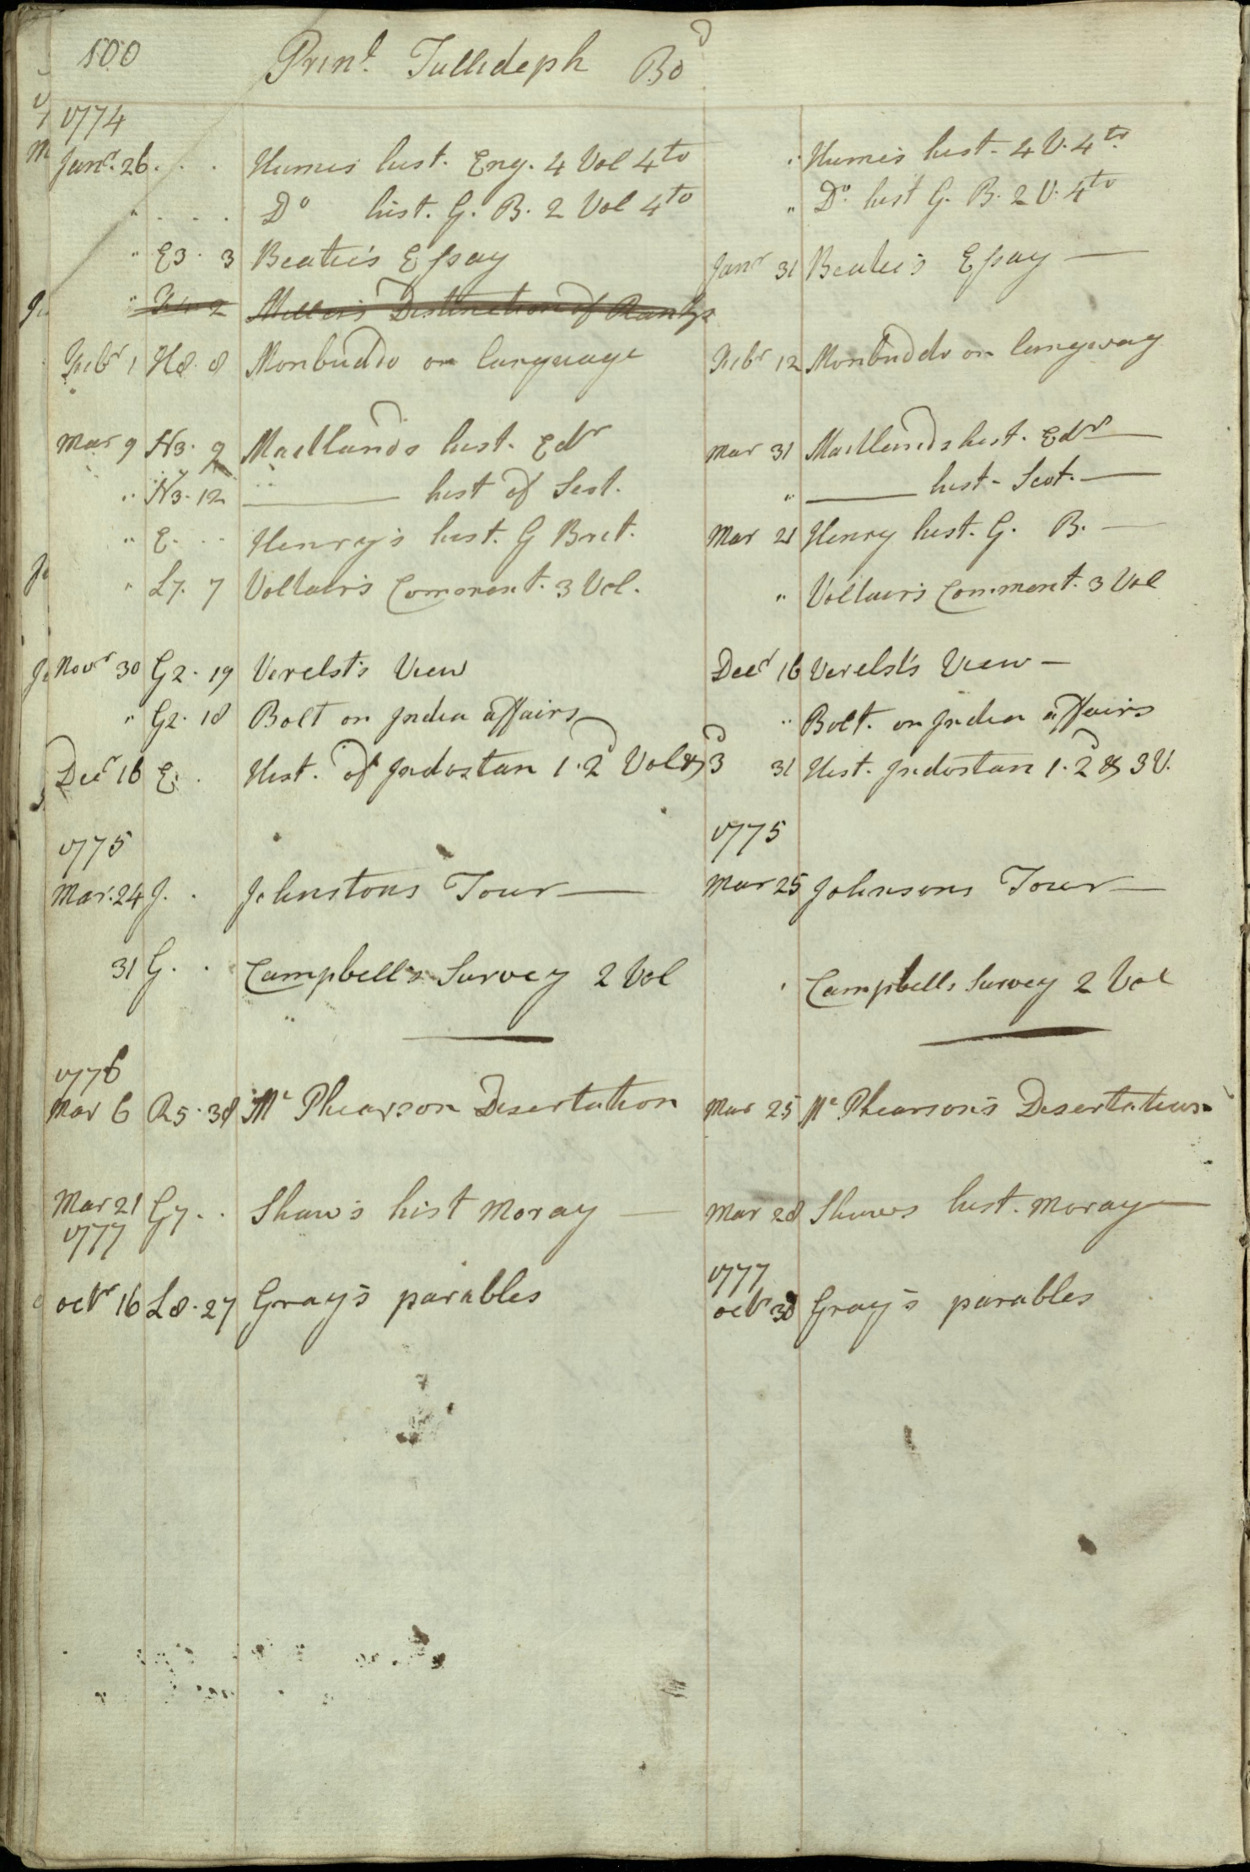 100 Prinl. Tullideph Bod
1774
Janr. 26 . . . Humes hist. Eng. 4 Vol 4to " Humes hist. 4 V. 4to
" . . . Do hist. G. B. 2 Vol 4to " Do. hist G. B. 2 V. 4to
" E3. 3 Beatie's Essay Janr 31 Beatie's Essay —
" Millers Distinction of Ranks
Febr 1 H8. 8 Monbuddo on language Febr 12 Monbuddo on languag
Mar 9 N3. 2 Maitlands hist. Edr Mar 31 Maitlands hist. Edr —
" N3. 12 ——— hist of Scot. " ——— hist. Scot. —
" E. . . Henry's hist. G Brit. Mar 21 Henry hist. G. B. —
" L7. 7 Voltair's Comment. 3 Vol. " Voltair's Comment. 3 Vol
Novr 30 G2. 19 Verelst's View Decr 16 Verelst's View —
" G2. 18 Bolt on India affairs " Bolt. on India affairs
Decr 16 E. . Hist. of Indostan 1. 2d Vol & 3d 31 Hist. Indostan 1. 2d & 3 V.
1775 1775
Mar. 24 J. . Johnstons Tour — Mar 25 Johnsons Tour —
31 G. . Campbell's Survey 2 Vol " Campbells Survey 2 Vol
1776
Mar 6 R5. 38 Mc Phearson Disertation Mar 25 Mc Phearson's Disertation
Mar 21 G7. . Shaw's hist Moray — Mar 28 Shaws hist. Moray —
1777 1777
octr 16 L8. 27 Gray's parables octr 30 Gray's parables